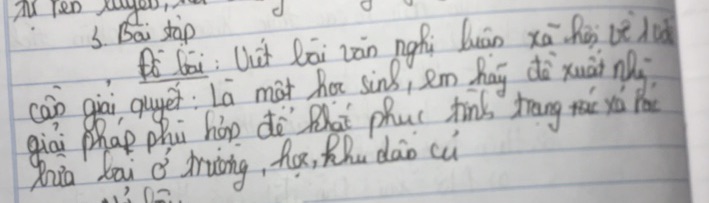 tự rèn luyện,
3. Bài tập
Đề bài: Viết bài văn nghị luận xã hội về
cần giải quyết: Là một học sinh, em hãy đề xuất
giải pháp phù hợp để khắc phục tình trạng xả rác
thừa bãi ở trường, học, khu dân cư